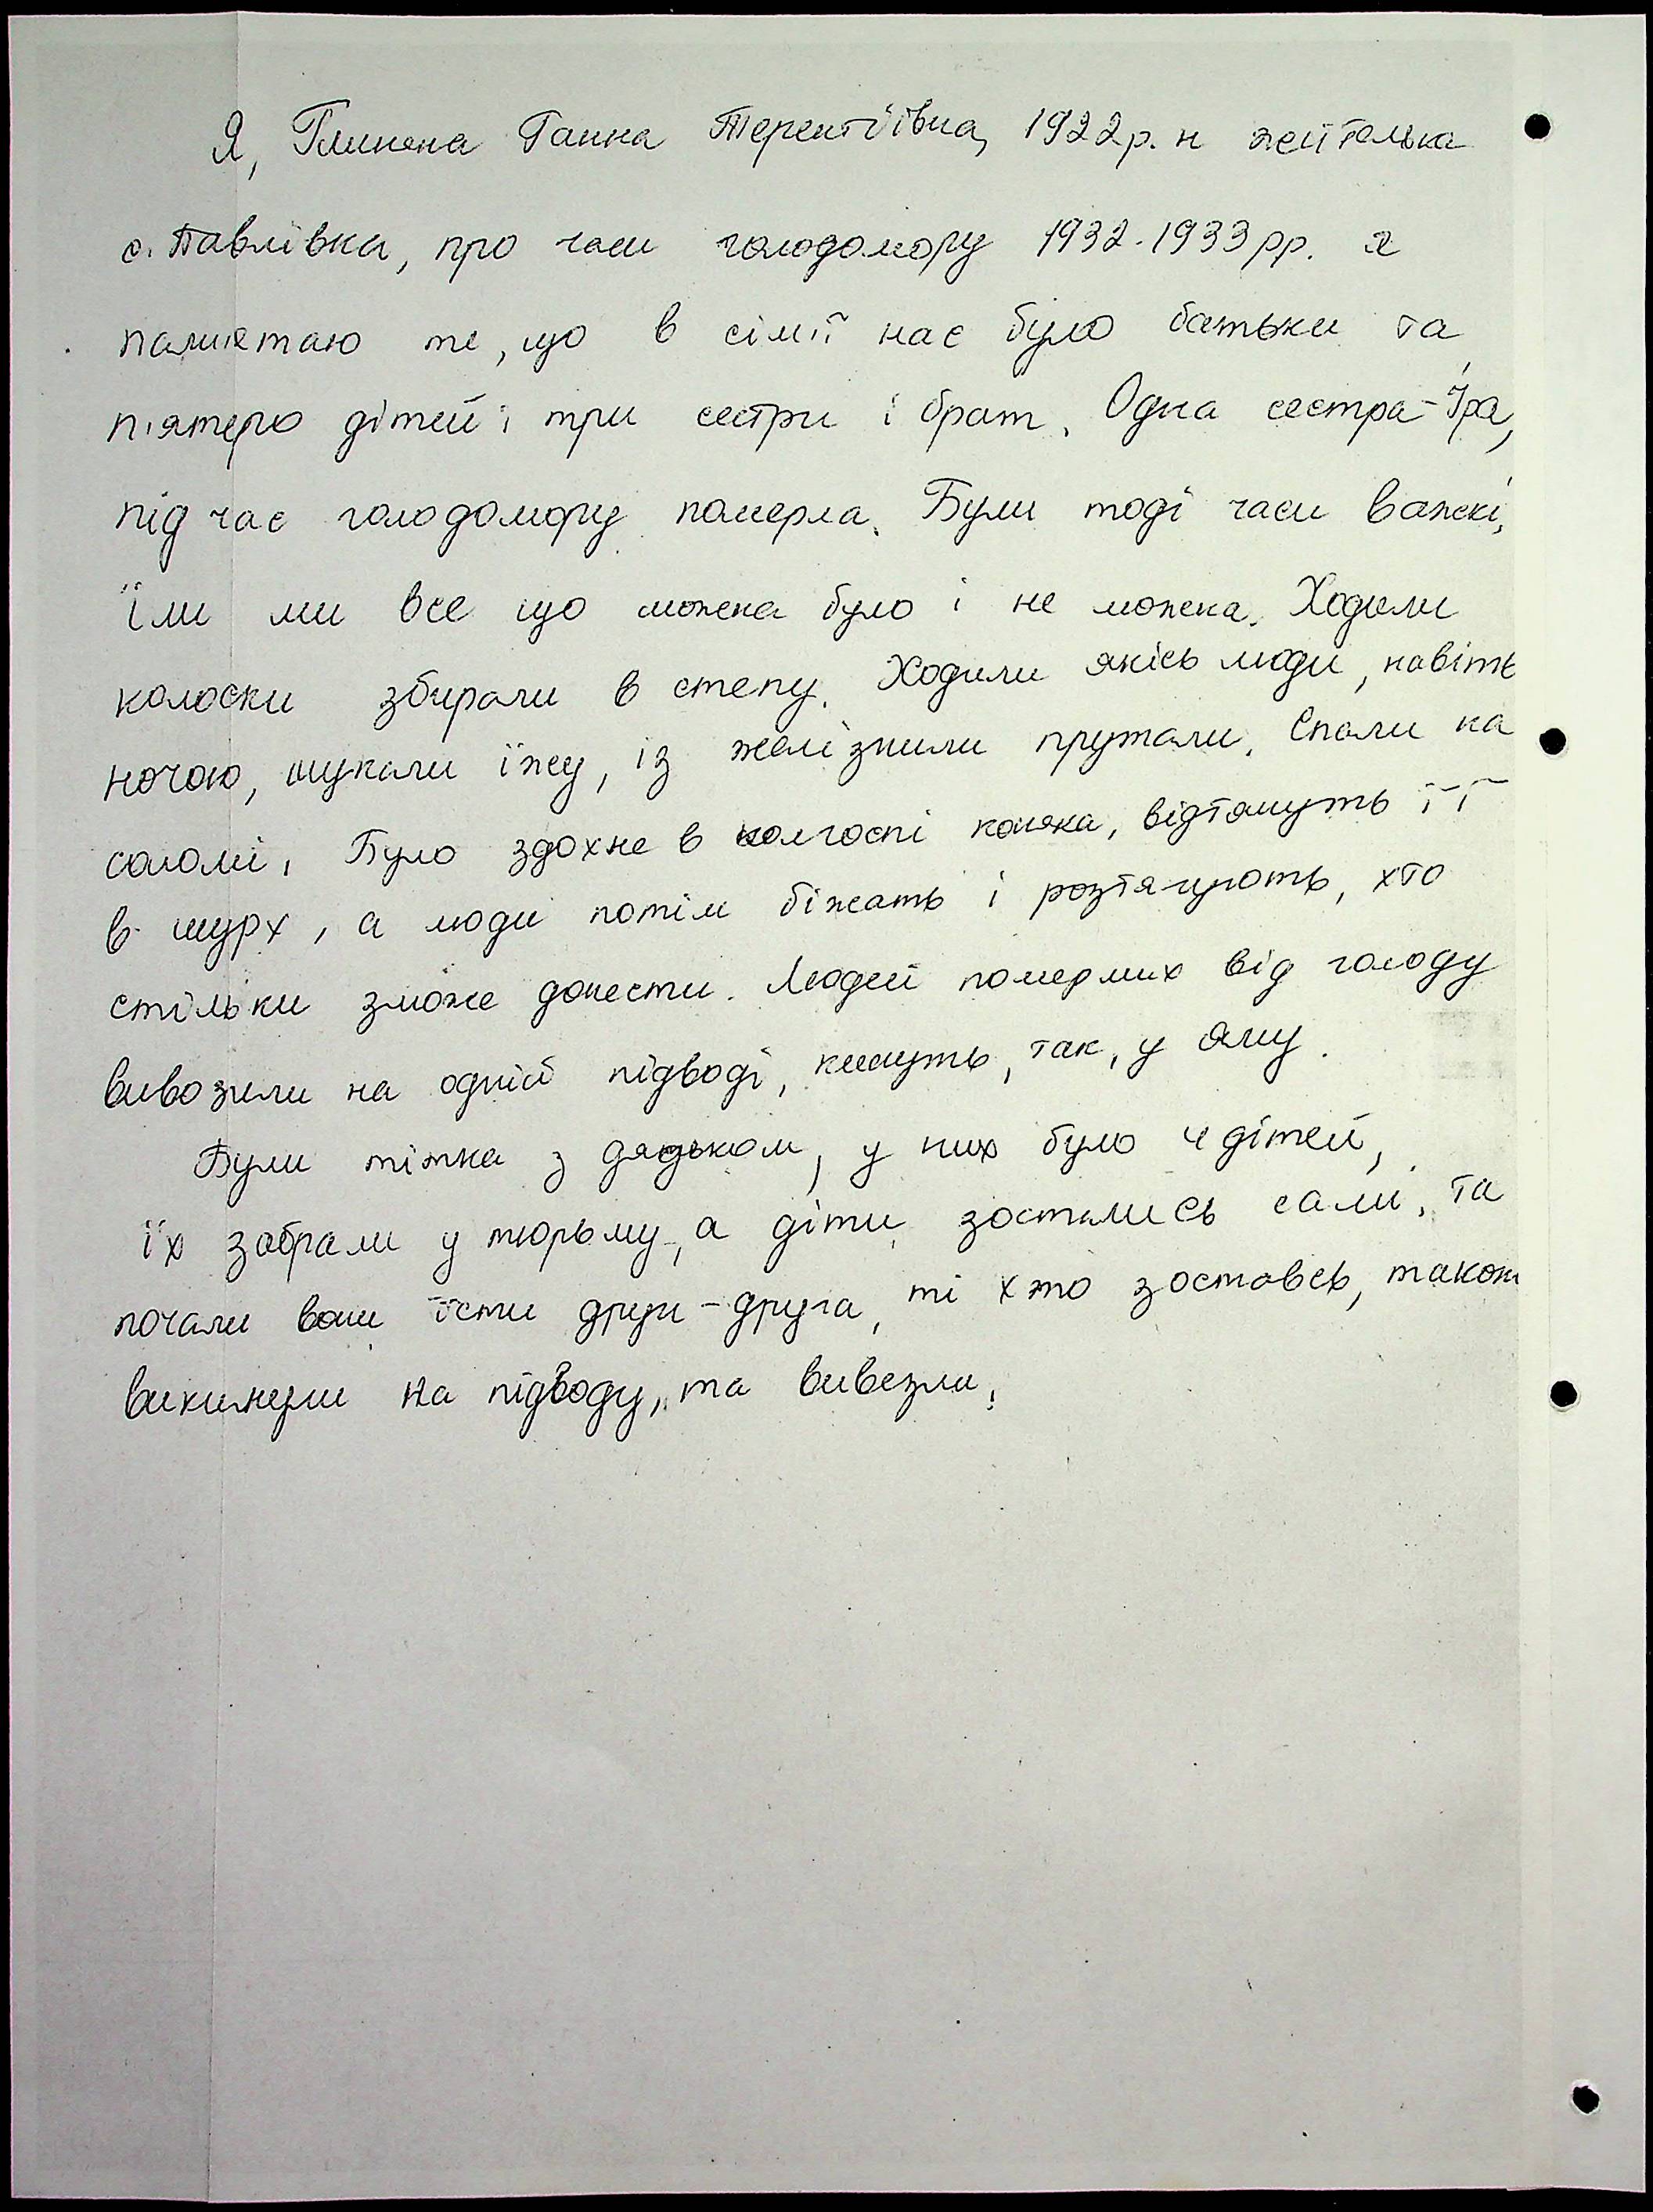 Я, Глиняна Ганна Терентіївна, 1922 р. н жителька
с. Павлівка, про часи голодомору 1932-1933 рр. я
памиятаю те, що в сім'ї нас було батьки та
п'ятеро дітей: три сестри і брат. Одна сестра - Іра,
під час голодомору померла. Були тоді часи важкі,
їли ми все що можна було і не можна. Ходили
колоски збирали в степу. Ходили якісь люди, навіть
ночою, шукали їжу, із желізними прутами. Спали на
соломі. Було здохне в колгоспі коняка, відтянуть її
в шурх, а люди потім біжать і розтягують, хто
стільки зможе донести. Людей померлих від голоду
вивозили на одній підводі, кинуть, так, у яму.
Були тітка з дядьком, у них було 4 дітей,
їх забрали у тюрьму, а діти зостались самі, та
почали вони їсти друг-друга, ті хто зоставсь, також
викинули на підводу, та вивезли.